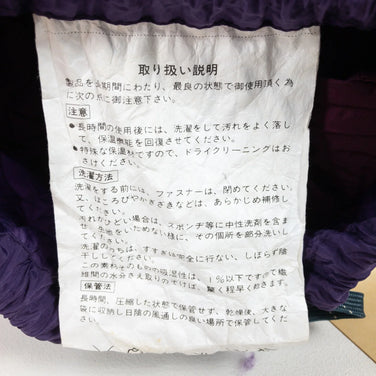 取り扱い説明
製品を長期間にわたり、最良の状態で御使用頂く為
に次の点に御注意下さい。
注意
●長時間の使用後には、洗濯をして汚れをよく落し
て、保温機能を回復させてください。
●特殊な保温材ですので、ドライクリーニングはお
さけください。
洗濯方法
洗濯をする前には、ファスナーは、閉めてください。
又、ほころびやかぎざきなどは、あらかじめ補修し
てください。
汚れのひどい場合は、スポンヂ等に中性洗剤を含ま
せ、生地をいためない様に、その個所を部分洗いし
てください。
洗濯のっちは、すすぎは完全に行ない、しぼらず陰
干ししてください。
この素わそのものの吸湿性は、1%以下ですので繊
維間の水分さえ取りのぞけば、驚く程早く乾きます。
保管法
長時間、圧縮した状態で保管せず、乾燥後、大きな
袋に収納し日陰の風通しの良い場所で保管してくだ